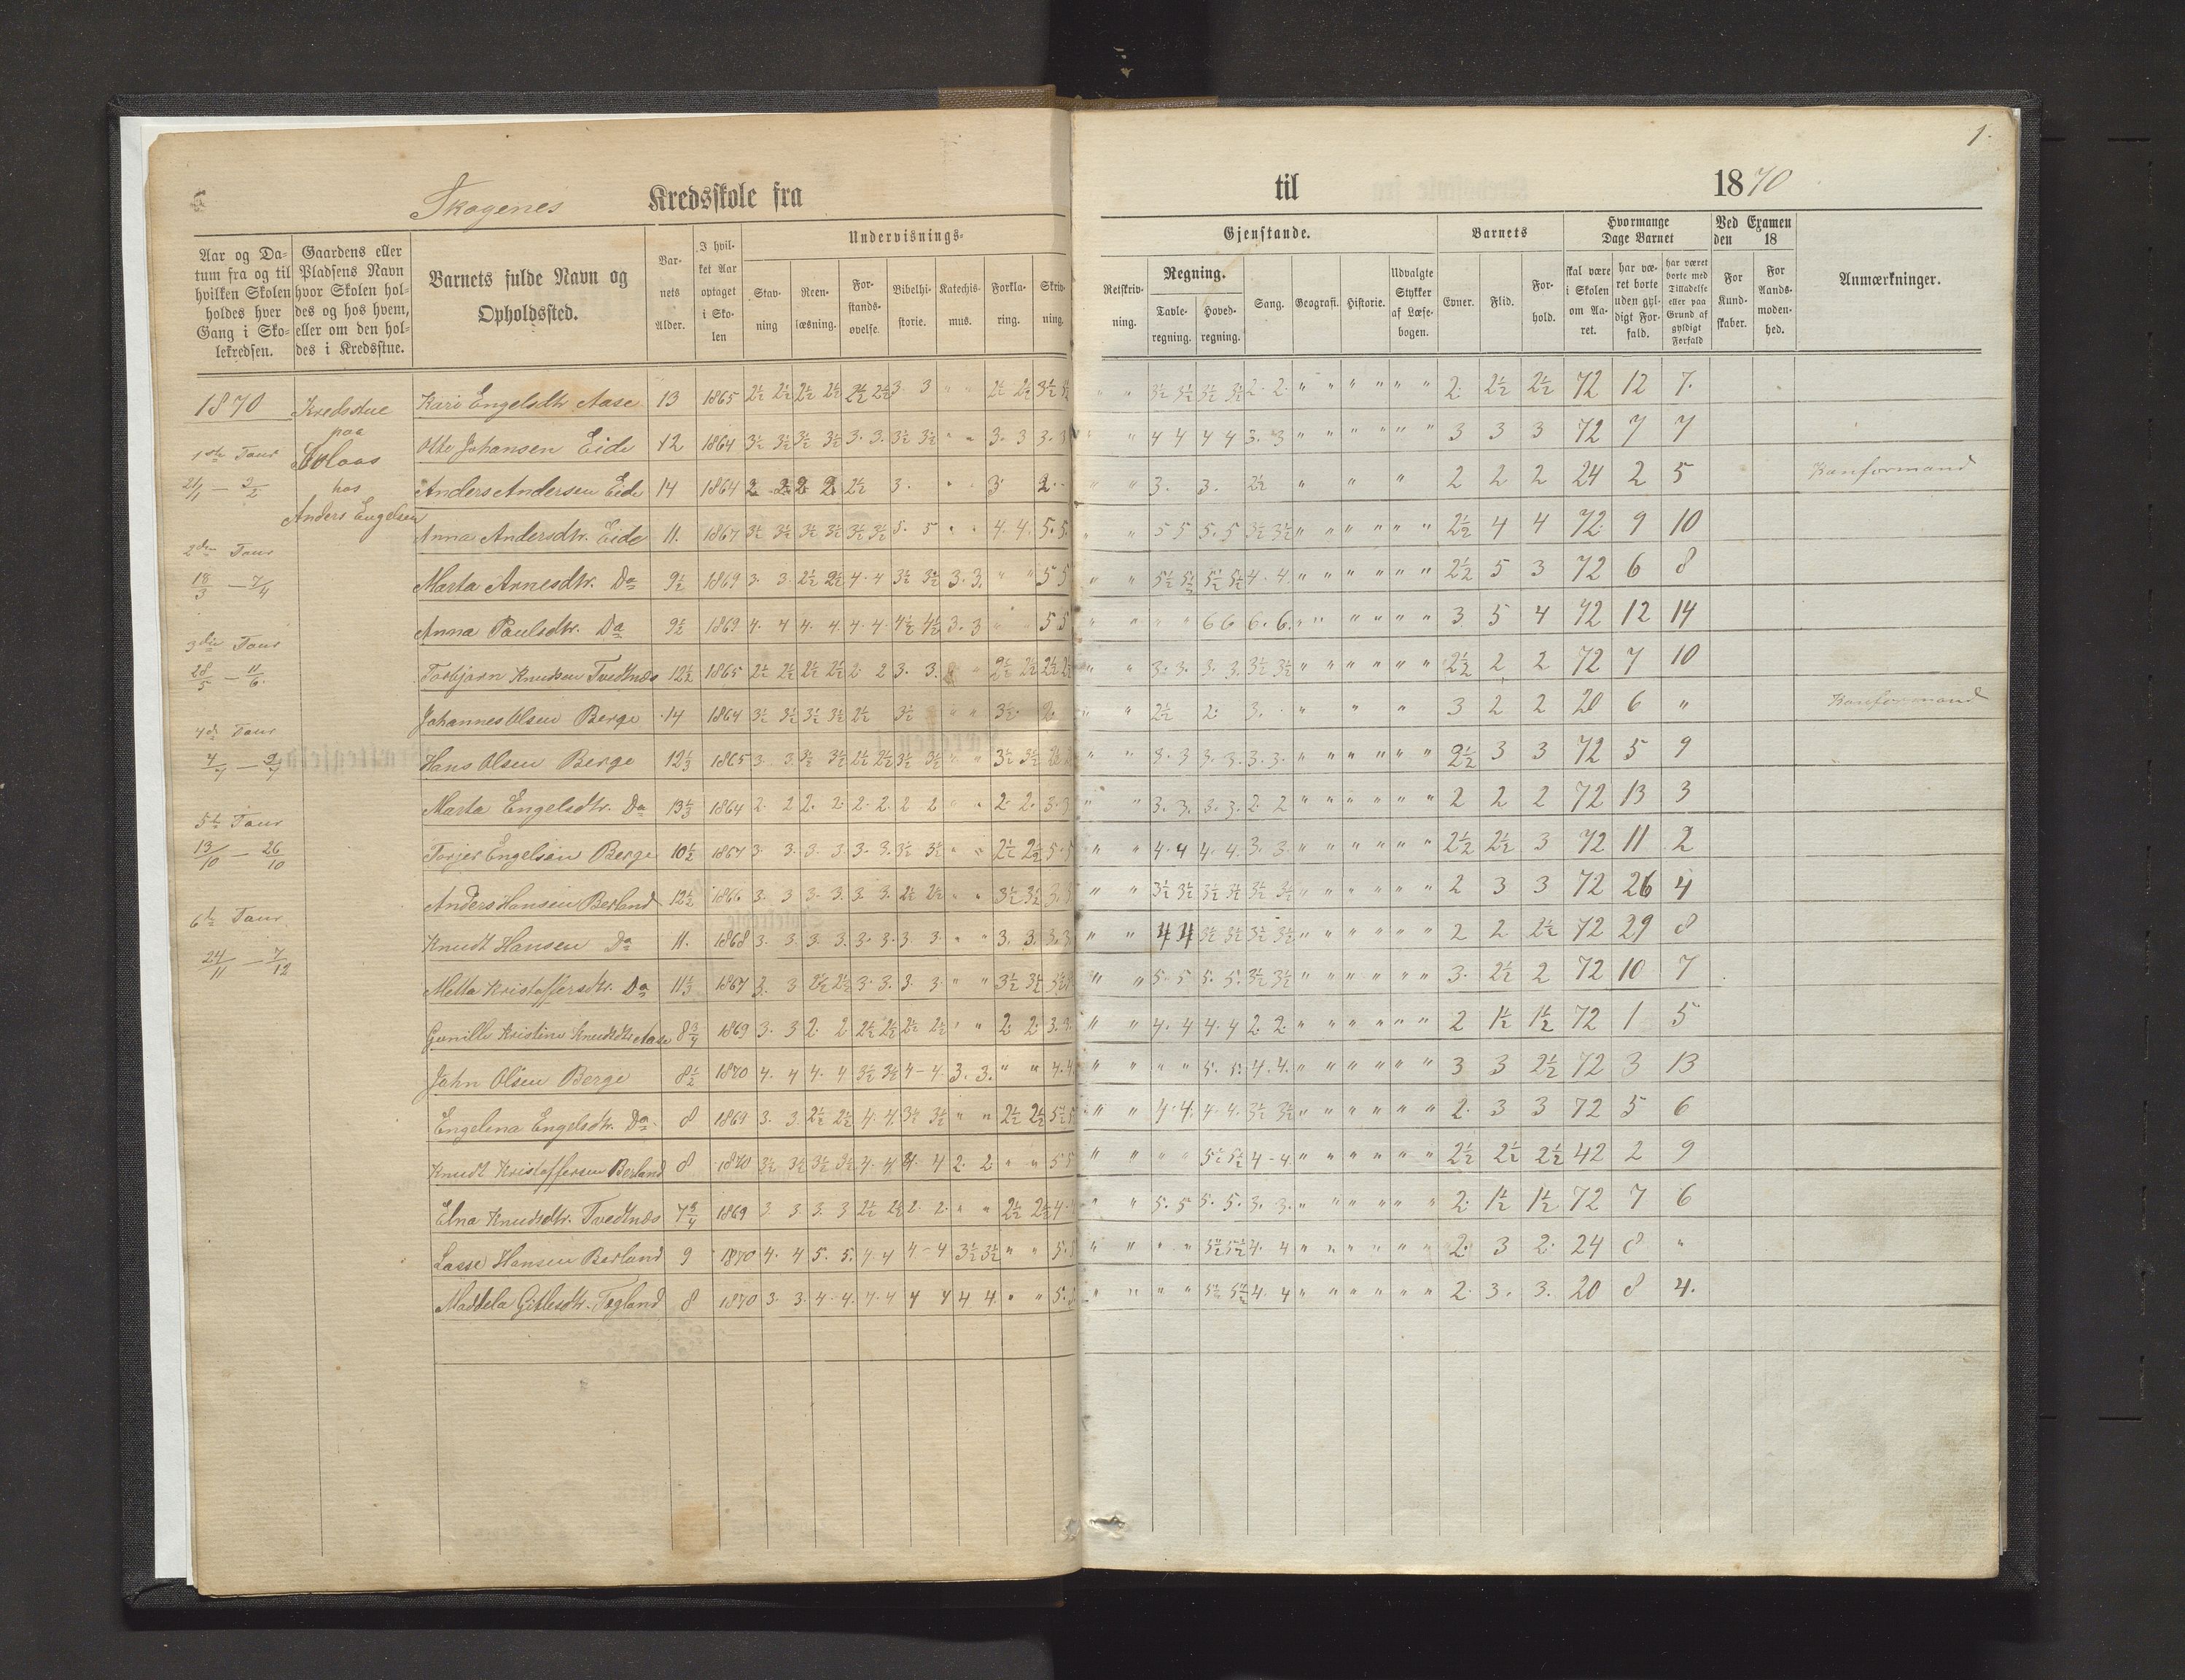 1.
Skogenes Kredsskole fra til 1870
Aar og Datum fra og til hvilken Skolen holdes hver Gang i Skolekredsen.
Gaardens eller Pladsens Navn hvor Skolen holdes og hos hvem, eller om den holdes i Kredsstue.
Barnets fulde Navn og Opholdssted.
Barnets Alder.
I hvilket Aar optaget i Skolen
Undervisnings-
Stavning
Reenlæsning.
Forstandsovelse.
Bibelhistorie.
Katechismus.
Forklaring.
Skrivning.
Gjenstande.
Retskrivning.
Regning.
Tavleregning.
Hovedregning.
Sang.
Geografi.
Historie.
Udvalgte Stykker af Læsebogen.
Barnets
Evner.
Flid.
Forhold.
Hvormange Dage Barnet
skal være i Skolen om Aaret.
har været borte uden gyldigt Forfald.
har været borte med Tilladelse eller paa Grund af gyldigt Forfald
Ved Examen den 18
For Kundskaber.
For Aandsmodenhed.
Anmærkninger.
1870
1ste Tour
21/1 — 3/2
2den Tour
18/3 — 7/4
3die Tour
28/5 — 11/6.
4de Tour
4/7 — 9/7
5te Tour
13/10 — 26/10
6te Tour
24/11 — 7/12
Kredsstue
paa
hos
Anders Engelsen
Kari Engelsdtr Aase 13 1865 2½ 2½ 2½ 2½ 2½ 2½ 3. 3 " " 2½ 2½ 3½ " " 3½ 3½ 3½ 3½ 2. 2. " " " " " " 2. 2½ 2½ 72 12 7.
Otte Johansen Eide 12 1864 3½ 3½ 3½ 3½ 3. 3. 3½ 3½ " " 3. 3 3. " " 4 4 4 4 3. 3 " " " " " " 3 3 3 72 7 7
Anders Andersen Eide 14 1864 2 2 2 2 2½ 3. " 3 2 " " 3. 3. 2½ " " " 2 2 2 24 2 5 Konformand
Anna Andersdtr. Eide 11. 1867 3½ 3½ 3½ 3½ 3½ 3½ 5. 5 " " 4. 4. 5. 5. " " 5 5 5. 5 3½ 3½ " " " " " " 2½ 4 4 72. 9 10
Marta Arnesdtr. Da 9½ 1869 3. 3. 2½ 2½ 4. 4 3½ 3½ 3. 3. " " 5 5 " " 5½ 5½ 5½ 5½ 4. 4. " " " " " " 2½ 5 3 72 6 8
Anna Paulsdtr. Da 9½ 1869 4. 4 4. 4. 4. 4. 4½ 4½ 3. 3 " " 5 5 " " " " 6 6 6. 6. " " " " " " 3 5 4 72 12 14
Torbjørn Knudsen Tvedtnæs 12½ 1865 2½ 2½ 2½ 2½ 2. 2 3. 3. " 2½ 2½ 2½ " " 3. 3. 3. 3. 3½ 3½ " " " " " " 2½ 2 2 72 7 10
Johannes Olsen Berge 14 1864 3½ 3½ 3½ 3½ 2½ 3½ " " 3½. 2. " " 2½ 2. 3. " " " 3 2 2 20 6 " Konformand
Hans Olsen Berge 12⅓ 1865 3. 3. 3½ 3½ 2½ 2½ 3½ 3½ " " 3½ 3½ " " 3. 3 3. 3. 3. 3. " " " " " " 2½ 3 3 72 5 9
Marta Engelsdtr. Da 13⅓ 1864 2. 2 2. 2. 2. 2. 2 2 " " 2. 2. 3. 3 " " 3. 3. 3. 3. 2. 2 " " " " " " 2 2 2 72 13 3
Torjer Engelsen Berge 10½ 1867 3. 3. 3. 3. 3. 3. 3½ 3½ " " 2½ 2½ 5. 5 " " 4. 4 4. 4. 3. 3. " " " " " " 2½ 2½ 3 72 11 2
Anders Hansen Berland 12½ 1866 3. 3 3. 3. 3. 3. 2½ 2½ " " 3½ 3½ 3. " " 3½ 3½ 3½ 3½ 3½ 3½ " " " " " " 2 3 3 72 26 4
Knudt Hansen Da 11. 1868 3. 3. 3. 3. 3. 3. 3. 3. " " 3. 3. 3. 3. " " 4 4 3½ 3½ 3½ 3½ " " " " " " 2 2 2½ 72 29 8
Metta Kristoffersdtr. Da 11⅓ 1867 3. 3 2½ 2½ 3. 3. 3. 3. " " 3½ 3½ " " 5. 5 5. 5. 3½ 3½ " " " " " " 3. 2½ 2 72 10 7
Gunille Kristine Knudsdtr Aase 8¾ 1869 3. 3 2. 2 2½ 2½ 2½ 2½ " " 2. 2. 3. 3. " " 4. 4 4. 4 2. 2. " " " " " " 2 1½ 1½ 72 1 5
John Olsen Berge 8½ 1870 4. 4 4. 4 3½ 3½ 4-4. 3. 3. " " 4. 4. " " " " 5. 5. 4. 4. " " " " " " 3 3 2½ 72 3 13
Engelena Engelsdtr. Da. 8 1869 3. 3. 2½ 2½ 4. 4. 3½ 3½ " " 2½ 2½ 5½ " " 4. 4. 4. 4. 3½ 3½ " " " " " " 2. 3 3 72 5 6
Knudt Kristoffersen Berland 8 1870 3½ 3½ 3½ 3½ 4. 4 4. 4 2. 2 " " 5 5 " " " " 5½ 5½ 4-4. " " " " " " 2½ 2½ 2½ 42 2 9
Elna Knudsdtr. Tvedtnæs 7¾ 1869 3 3. 3. 3 2½ 2½ 2. 2. " " 2½ 2½ 4. " " 5. 5 5. 5. 3. 3. " " " " " " 2. 1½ 1½ 72 7 6
Lasse Hansen Berland 9 1870 4. 4 5. 5. 4 4 4-4 3½ 3½ " " 5. 5 " " " " 5½ 5½ 4. 4 " " " " " " 2. 3 2. 24 8 "
Maddela Gitlesdtr. Togland 8 1870 3. 3. 4. 4. 4. 4 4 4 4 4. " " 5. " " " " 5½ 5½ 4. 4 " " " " " " 2. 3. 3. 20 8 4.